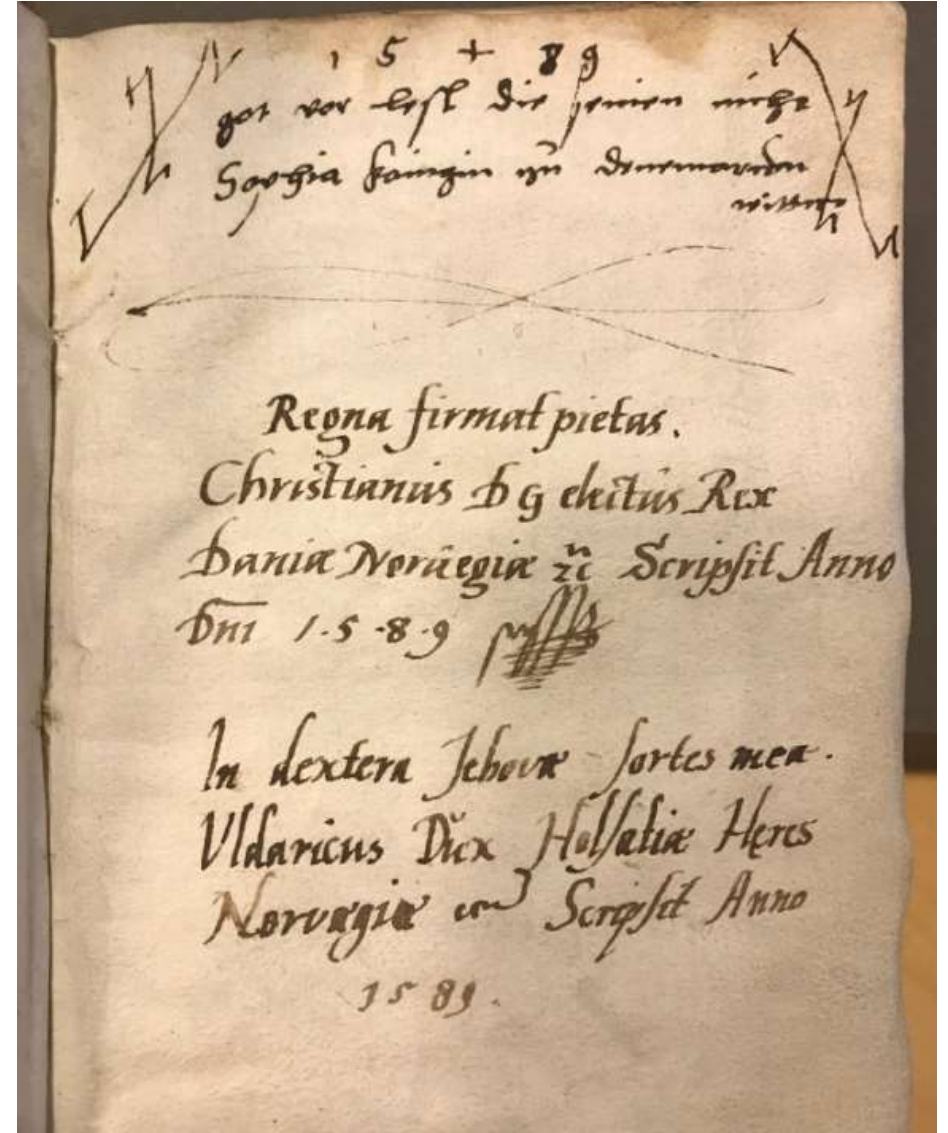 15 + 89
got vor lesl die seinen nicht
Sophia koingin zu denemarcken
wittwe
Regna firmat pietas.
Christianus D G electus Rex
Daniæ Norvegiæ ꝛc Scripsit Anno
Dni 1·5·8·9
In dextera Jehovæ sortes mea.
Uldaricus Dux Holsatiæ Heres
Norvægiæ Scripsit Anno
1589.